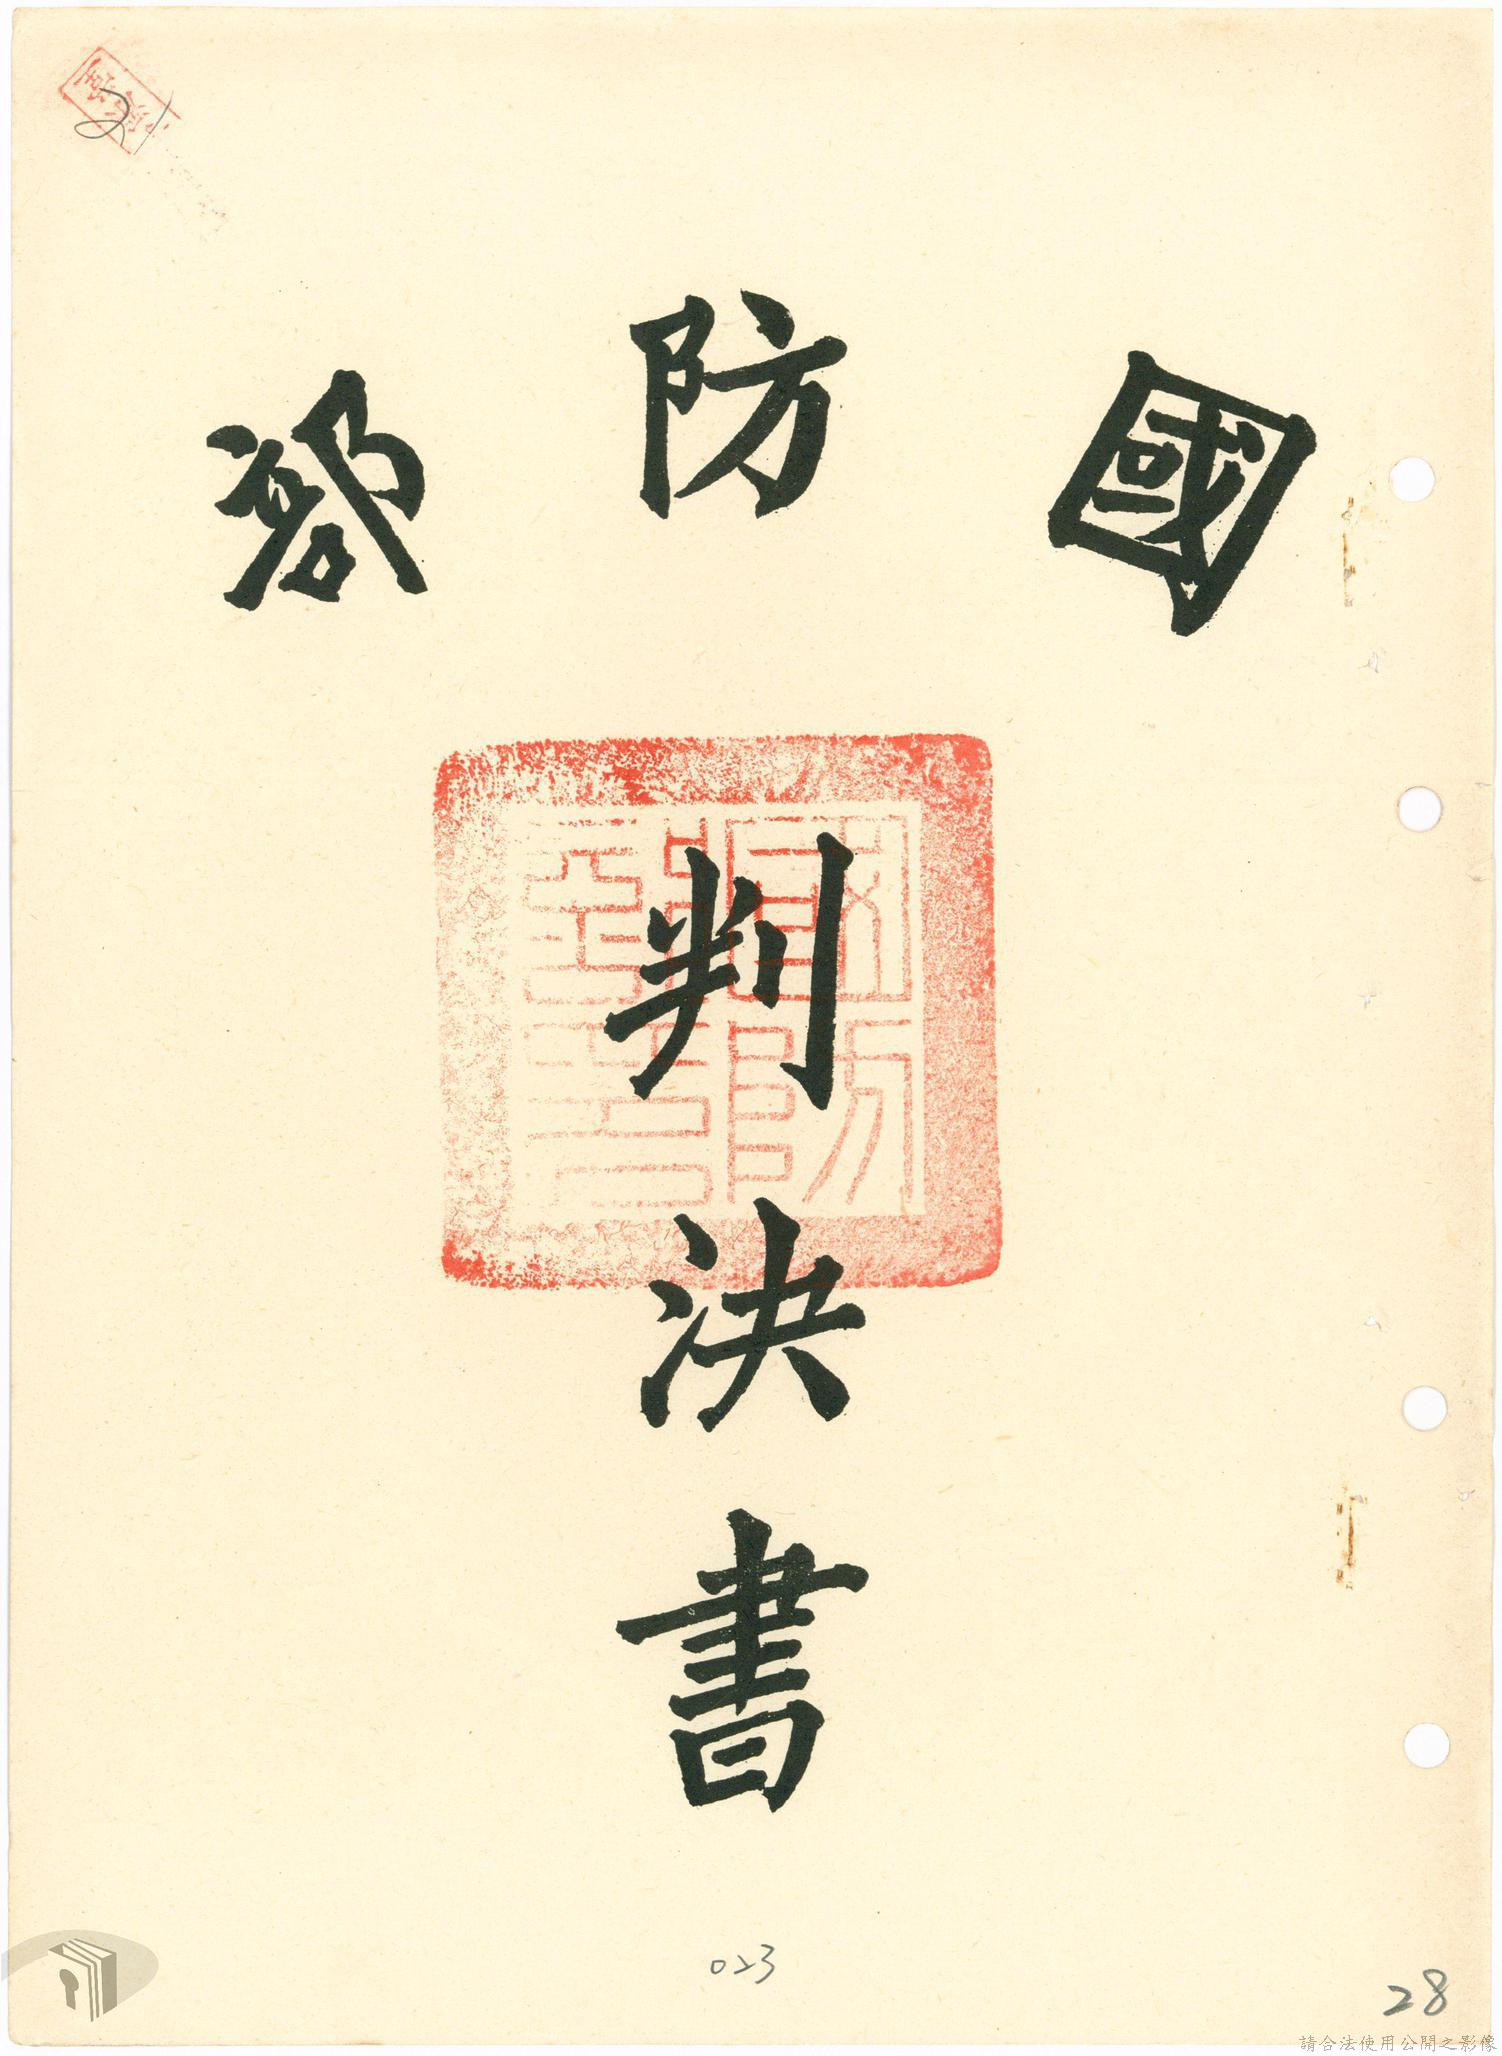 國防部
判決書
21
023
28
請合法使用公開之影像